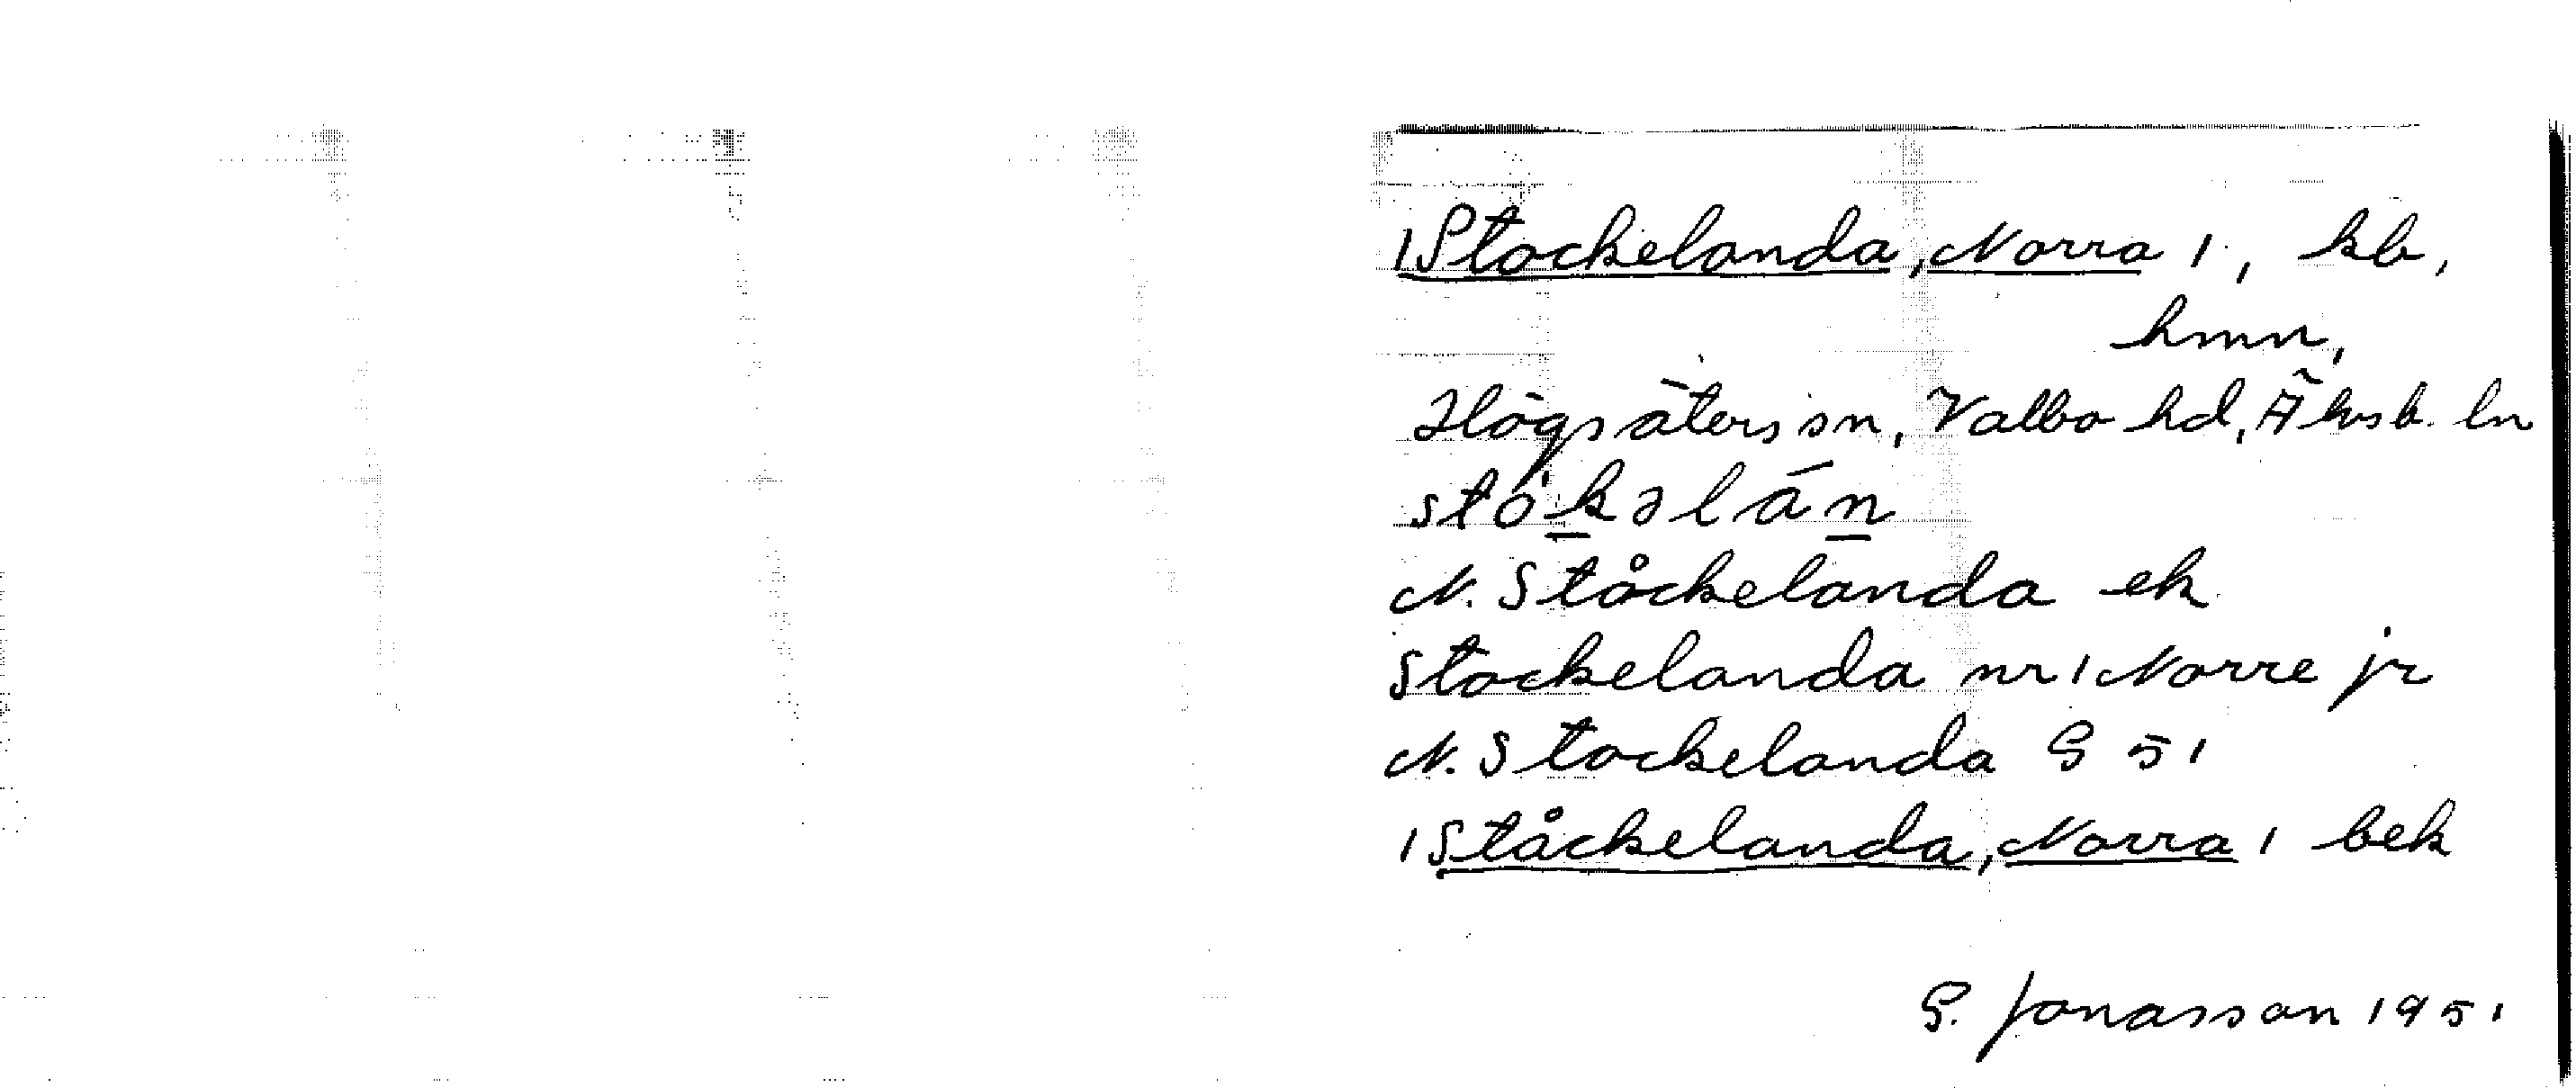 1 Stockelanda, Norra 1, kb,
hmn,
Högsäters sn, Valbo hd, Älvsb. ln
stòkəlán
N. Ståckelanda ek
Stockelanda nr 1 Norre jr
N. Stockelanda G 51
1 Ståckelanda, Norra 1 bek
G. Jonasson 1951